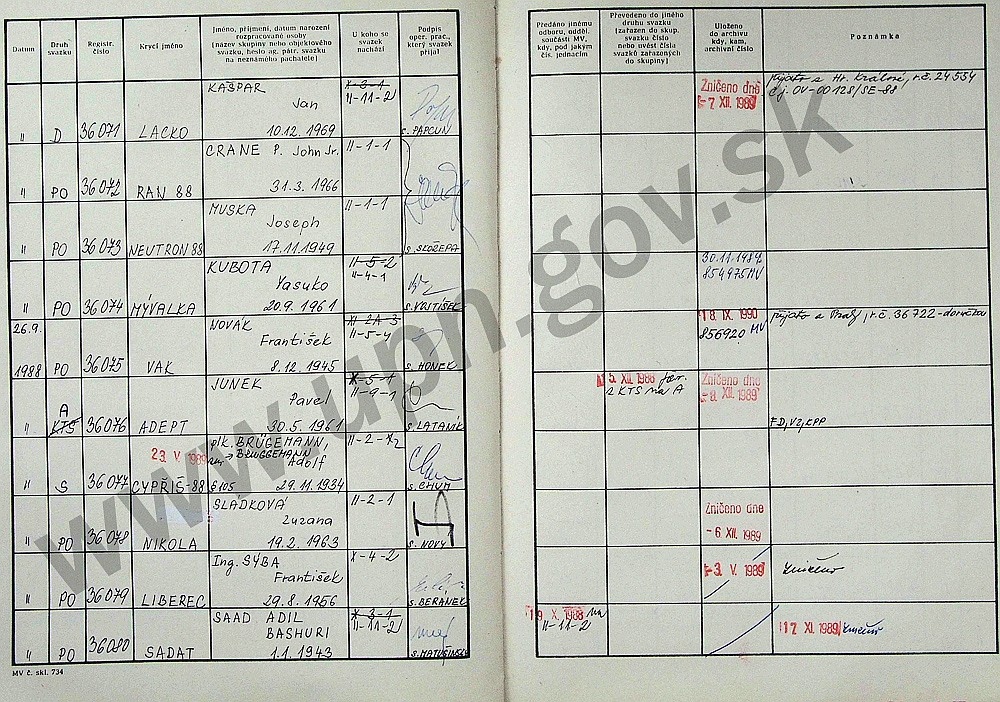 Datum
Druh svazku
Registr. číslo
Krycí jméno
Jméno, příjmení, datum narození
rozpracované osoby
(název skupiny nebo objektového
svazku, heslo ag. pátr. svazku
na neznámého pachatele)
U koho se
svazek
nachází
Podpis
oper. prac.,
který svazek
přijal
Předáno jinému
odboru, odděl.
součásti MV,
kdy, pod jakým
čís. jednacím
Převedeno do jiného
druhu svazku
(zařazen do skup.
svazku číslo
nebo uvést čísla
svazků zařazených
do skupiny)
Uloženo
do archivu
kdy, kam,
archivní číslo
Poznámka
KAŠPAR X-3-1
Jan II-11-2
" D 36071 LACKO 10.12.1969 s. PAPCUN
Zničeno dne
-7 XII. 1989
Hr. Králové, r.č. 24534
čj. OV-00128/SE-88
CRANE P. John Jr. II-1-1
" PO 36072 RAN 88 31.3.1966
MUSKA II-1-1
Joseph
" PO 36073 NEUTRON 88 17.11.1949 s. SLOŽEPA
KUBOTA II-5-2
Yasuko II-4-1
" PO 36074 MÝVALKA 20.9.1961 s. VOJTÍŠEK
854975 MV
26.9. NOVÁK XI-2A-3
František II-5-4
1988 PO 36075 VAK 8.12.1945 s. HONEK
18. IX. 1990
856920 MV
r.č. 36722
JUNEK X-5-1
A Pavel II-9-1
" KTS 36076 ADEPT 30.5.1961 s. LATANÍK
5. XII. 1988
z KTS na A
Zničeno dne
-8. XII. 1989
FD, VZ, KPP
plk. BRÜGEMANN, II-2-
23. V. 1989 → BRÜGGEMANN
Adolf
" S 36077 CYPŘIŠ-88 6105 29.11.1934 s. CHUM
SLADKOVÁ II-2-1
Zuzana
" PO 36078 NIKOLA 19.2.1963 s. NOVÝ
Zničeno dne
-6. XII. 1989
Ing. SÝBA X-4-2
František
" PO 36079 LIBEREC 29.8.1956 s. BERÁNEK
-3. V. 1989
SAAD ADIL X-3-1
BASHURI II-11-2
" PO 36080 SADAT 1.1.1943 s. MATUŠINSKÝ
19. X. 1988 na
II-11-2
17. XI. 1989
MV č. skl. 734
www.upn.gov.sk